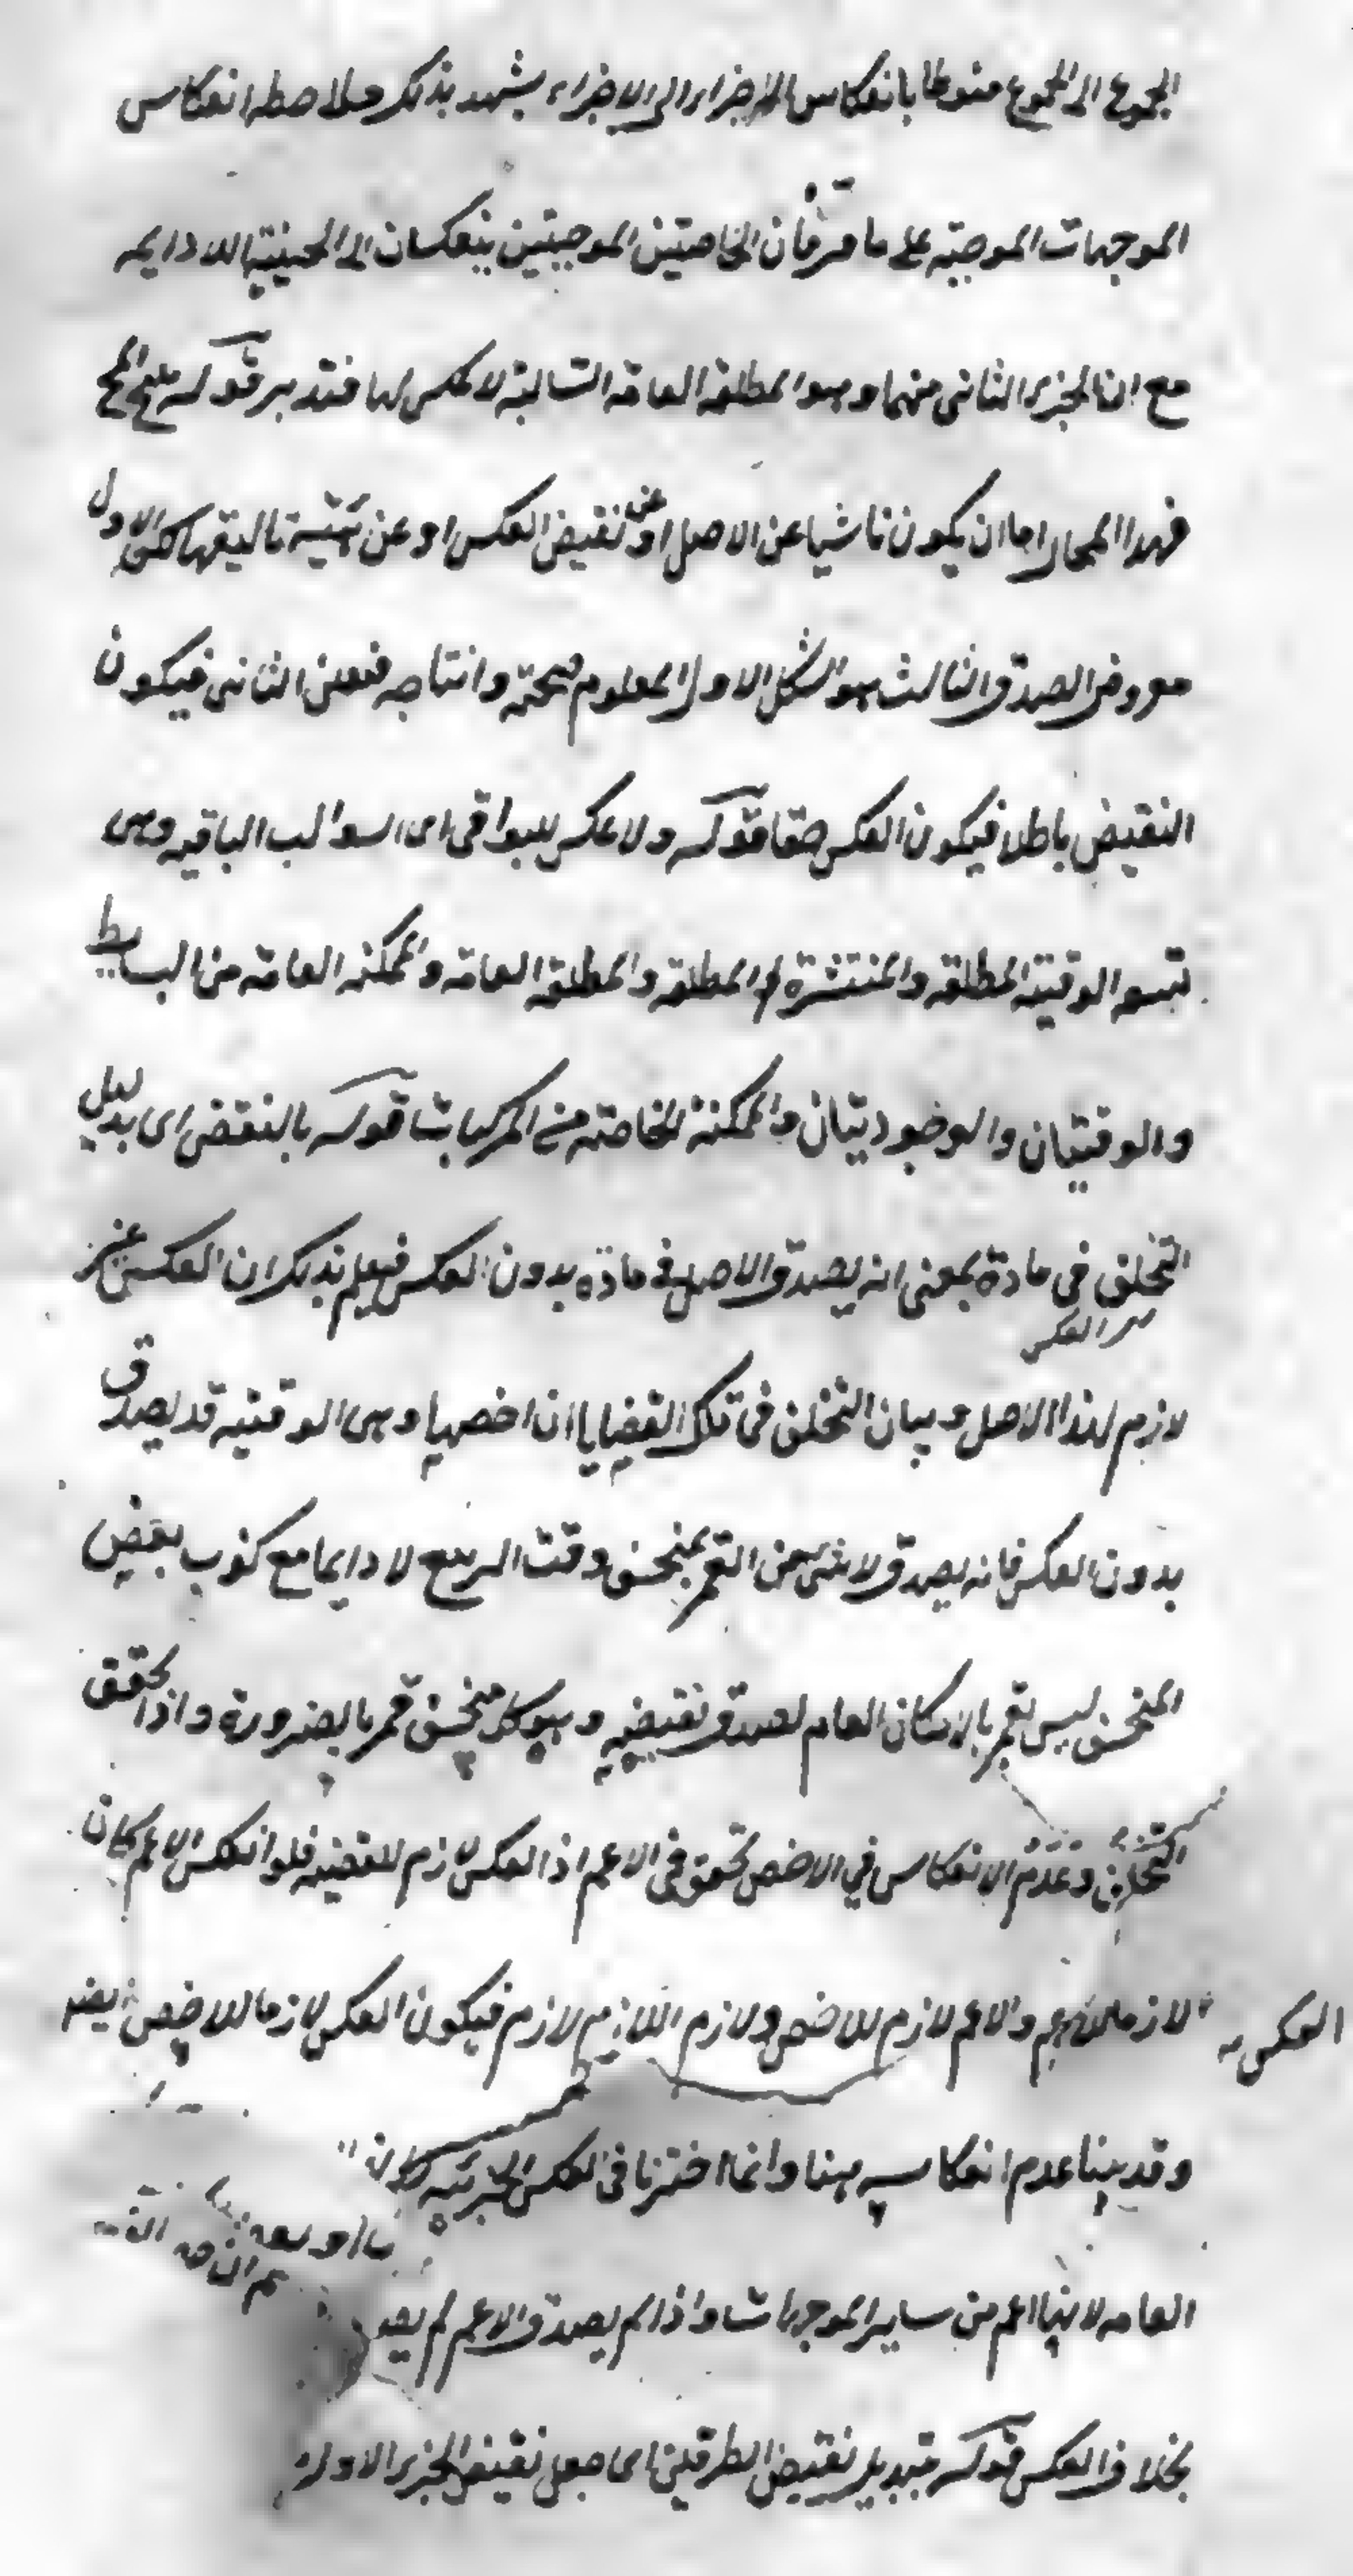 المجموع الى المجموع منوطا بانعكاس الاجزاء الى الاجزاء يشهد بذلك ملاحظة انعكاس
الموجهات الموجبة على ما مر فان الخاصتين الموجبتين ينعكسان الى الحينية اللادايمه
مع ان الجزء الثاني منهما وهو المطلقة العامة السالبة لا عكس لها فتدبر قوله ينتج المح
فهذا المحال اما ان يكون ناشيا عن الاصل او عن نقيض العكس او عن هيئة تاليفهما لكن الاول
مفروض الصدق والثالث هو الشكل الاول المعلوم صحته وانتاجه فتعين الثاني فيكون
النقيض باطلا فيكون العكس حقا قوله ولا عكس للبواقي اى السوالب الباقيه وهى
تسعه الوقتية المطلقه والمنتشرة المطلقه والمطلقه العامه والممكنه العامه من البسايط
والوقتيتان والوجوديتان والممكنة الخاصه من المركبات قوله بالنقض اى بدليل
التخلف في مادة بمعنى انه يصدق الاصل في مادة بدون العكس فيعلم بذلك ان العكس غير
لازم لهذا الاصل وبيان التخلف في تلك القضايا ان اخصها وهى الوقتيه قد يصدق
بدون العكس فانه يصدق لا شى من القمر بمنخسف وقت التربيع لا دايما مع كذب بعض
المنخسف ليس بقمر بالامكان العام لصدق نقيضه وهو كل منخسف قمر بالضرورة واذا تحقق
التخلف وعدم الانعكاس في الاخص تحقق في الاعم اذ العكس لازم للقضيه فلو انعكس الاعم كان
العكس لازما للاعم والاعم لازم للاخص ولازم اللازم لازم فيكون العكس لازما للاخص ايضا
وقد بينا عدم انعكاسه هنا وانما اخترنا في العكس الجزئيه
العامه لانها اعم من ساير الموجهات واذا لم يصدق الاعم لم يصد
بخلاف العكس قوله تبديل نقيض الطرفين اى جعل نقيض الجزء الاول